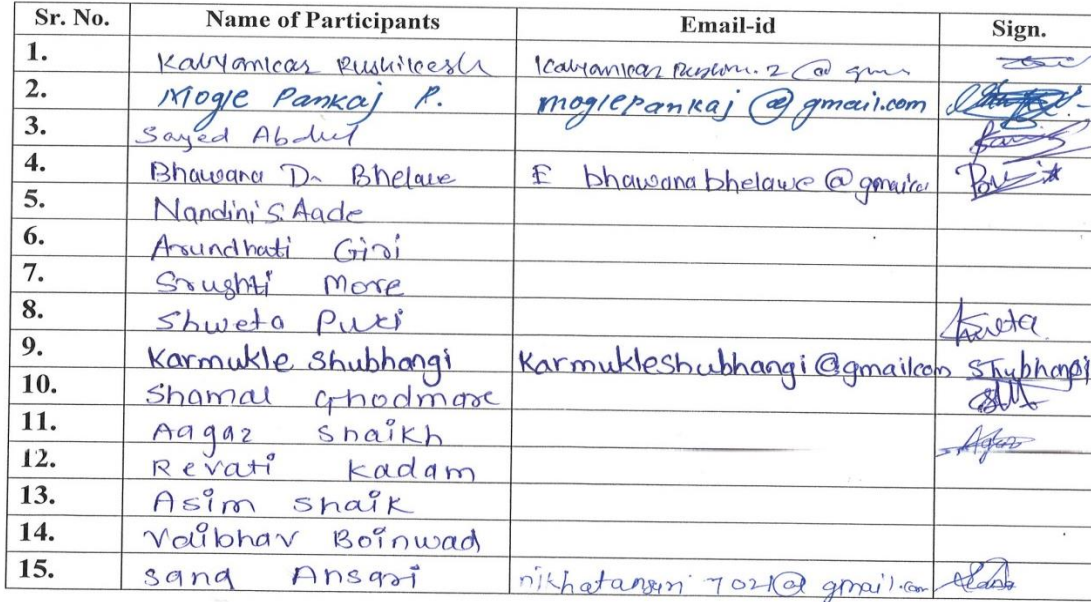 Sr. No. Name of Participants Email-id Sign.
1. Kalyamkar Rushikesh
2. Mogle Pankaj P. moglepankaj@gmail.com
3. Sayed Abdul
4. Bhawana D. Bhelawe E bhawanabhelawe@gmail.com
5. Nandini S. Aade
6. Arundhati Giri
7. Srushti More
8. Shweta Puri Shweta
9. Karmukle Shubhangi Karmukleshubhangi@gmailcom Shubhangi
10. Shamal Ghodmare
11. Aagaz Shaikh
12. Revati Kadam
13. Asim Shaik
14. Vaibhav Boinwad
15. Sana Ansari nikhatansari7021@gmail.com